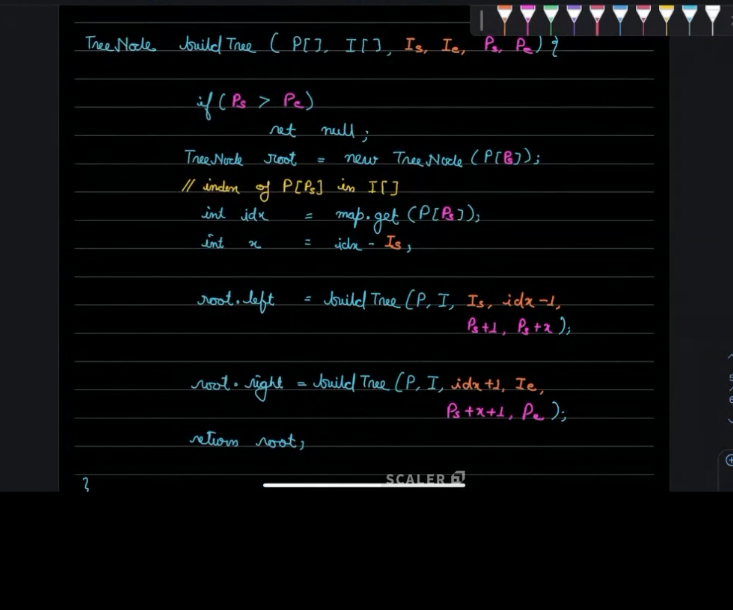 TreeNode buildTree ( P[], I[], Is, Ie, Ps, Pe) {
if (Ps > Pe)
ret null;
TreeNode root = new TreeNode (P[Ps]);
// index of P[Ps] in I[]
int idx = map.get (P[Ps]);
int x = idx - Is;
root.left = buildTree (P, I, Is, idx-1,
Ps+1, Ps+x);
root.right = buildTree (P, I, idx+1, Ie,
Ps+x+1, Pe);
return root;
}
SCALER